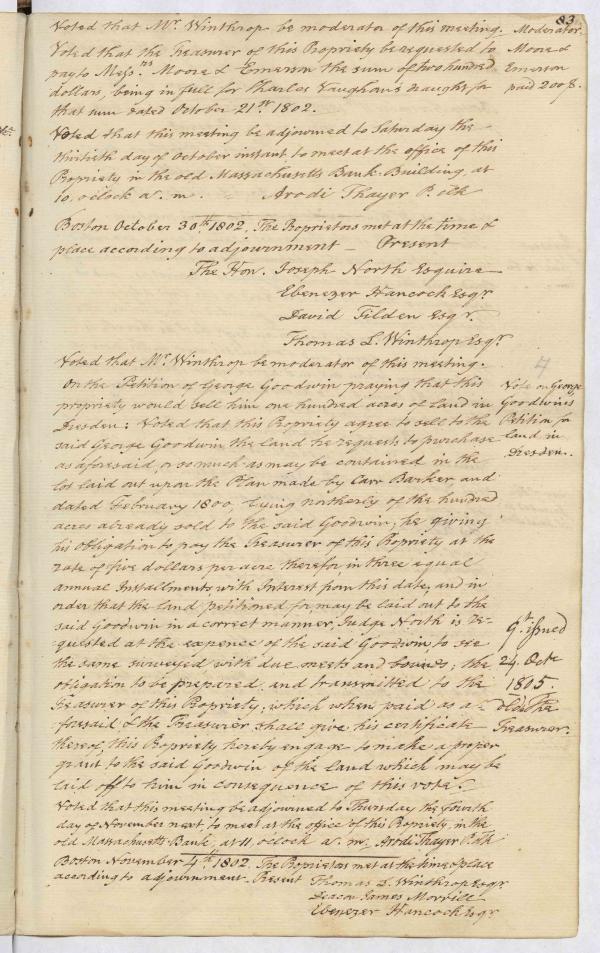 83
Voted that Mr. Winthrop be moderator of this meeting.
Moderator.
Voted that the Treasurer of this Propriety be requested to
pay to Messrs. Moore & Emerson the sum of two hundred
dollars, being in full for Charles Vaughan's draught for
that sum dated October 21st 1802.
Moore &
Emerson
paid 200$.
Voted that this meeting be adjourned to Saturday the
thirtieth day of October instant to meet at the office of this
Propriety in the old Massachusetts Bank Building, at
10, o'clock a. m. Arodi Thayer P. Clk
Boston October 30th. 1802. The Proprietors met at the time &
place according to adjournment — Present
The Hon. Joseph North Esquire
Ebenezer Hancock Esqr.
David Tilden Esqr.
Thomas L. Winthrop Esqr.
Voted that Mr. Winthrop be moderator of this meeting.
On the Petition of George Goodwin praying that this
propriety would sell him one hundred acres of land in
Dresden; Voted that this Propriety agree to sell to the
said George Goodwin the land he requests to purchase
as aforesaid, or so much as may be contained in the
lot laid out upon the Plan made by Carr Barker, and
dated February 1800, lying northerly of the hundred
acres already sold to the said Goodwin, he giving
his obligation to pay the Treasurer of this Propriety at the
rate of five dollars per acre therefor, in three equal
annual Installments, with Interest from this date; and in
order that the land petitioned for, may be laid out to the
said Goodwin in a correct manner, Judge North is re-
-quested at the expence of the said Goodwin, to see
the same surveyed with due meets and bounds; the
obligation to be prepared, and transmitted to the
Treasurer of this Propriety; which when paid as a-
-foresaid & the Treasurer shall give his certificate
thereof, this Propriety hereby engage to make a proper
grant to the said Goodwin of the land which may be
laid off to him in consequence of this vote.
4
Vote on George
Goodwin's
Petition for
land in
Dresden.
Gt. issued
24. Octr
1805.
The
Treasurer.
Voted that this meeting be adjourned to Thursday the fourth
day of November next, to meet at the office of this Propriety, in the
old Massachusetts Bank, at 11, o'clock a. m. Arodi Thayer P. Clk
Boston November 4th. 1802. The Proprietors met at the time & place
according to adjournment. Present Thomas L. Winthrop Esqr
Deacon James Morrill
Ebenezer Hancock Esqr